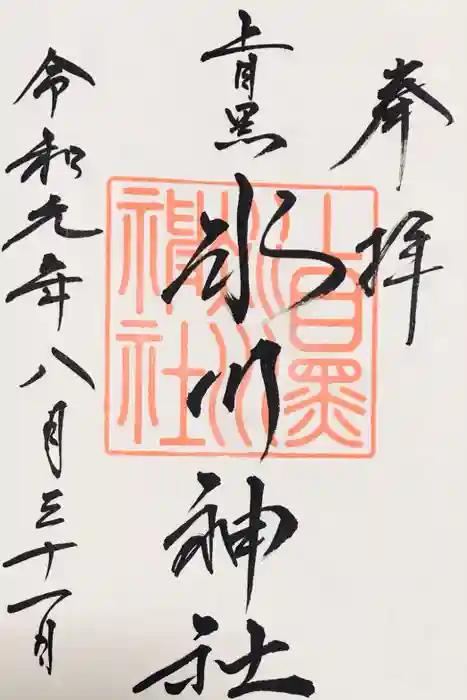 奉拝
上目黒
氷川神社
令和元年八月三十一日
上目黒
氷川
神社